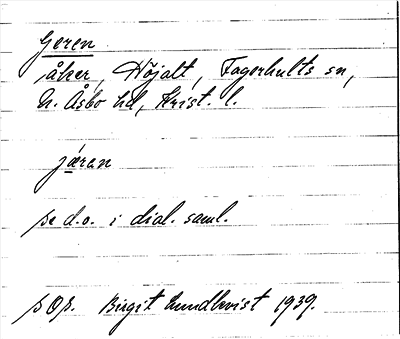 Geren
åker, Höjalt, Fagerhults sn,
N. Åsbo hd, Krist. l.
jæren
se d.o. i dial. saml.
Birgit Lundkvist 1939.